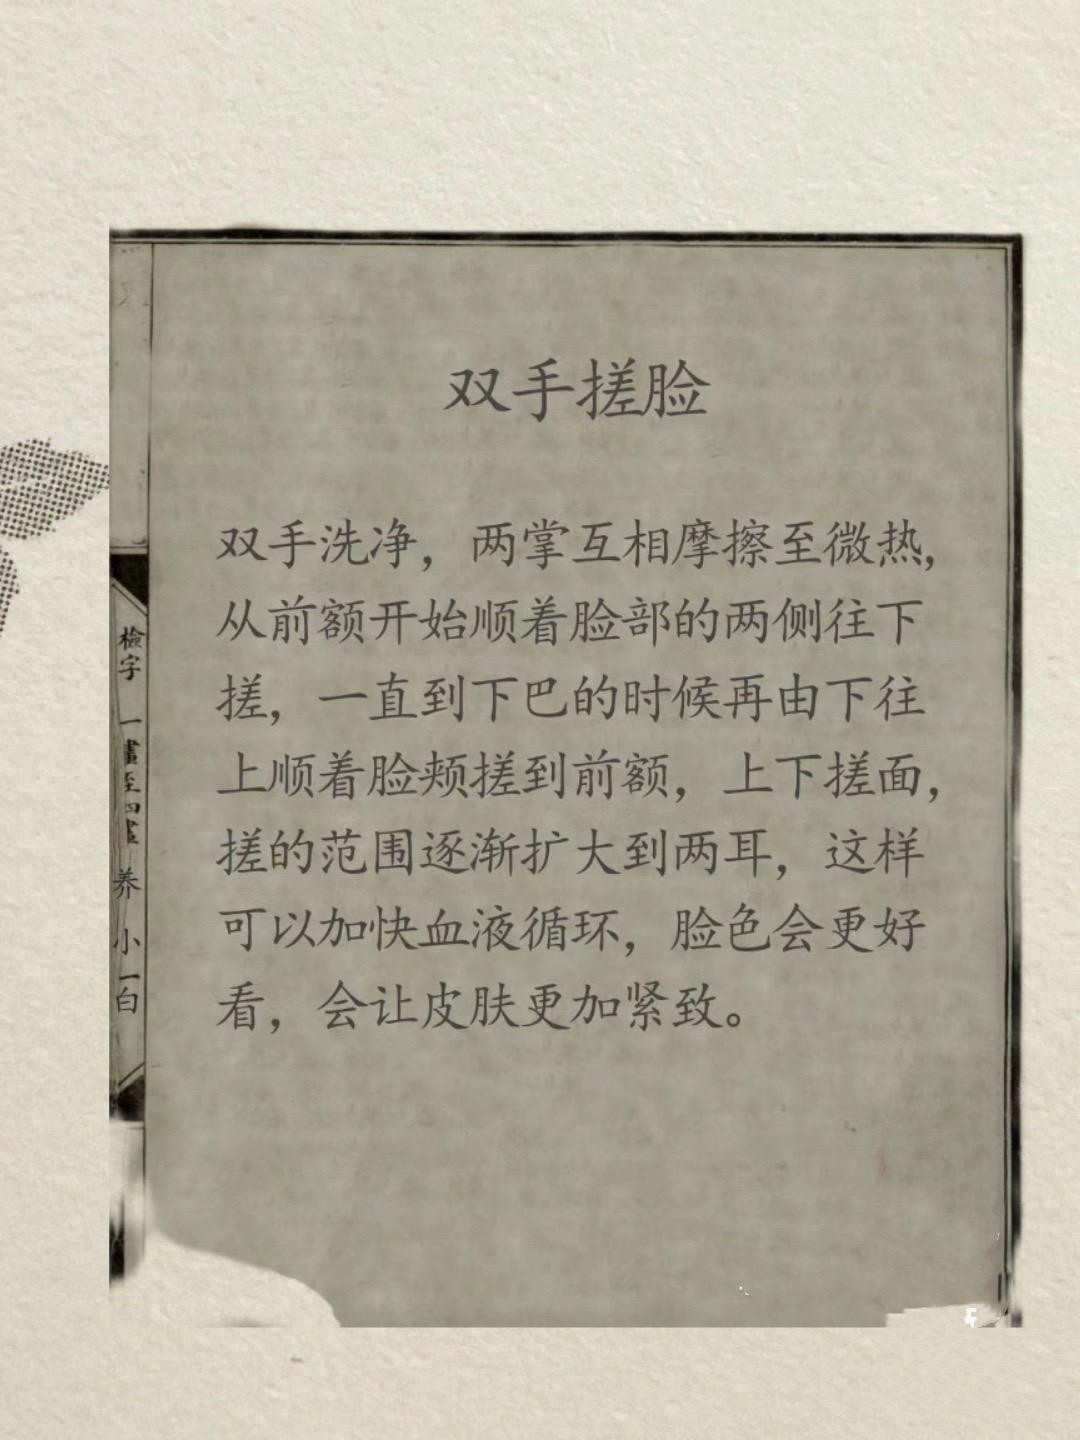 双手搓脸
双手洗净，两掌互相摩擦至微热，
从前额开始顺着脸部的两侧往下
搓，一直到下巴的时候再由下往
上顺着脸颊搓到前额，上下搓面，
搓的范围逐渐扩大到两耳，这样
可以加快血液循环，脸色会更好
看，会让皮肤更加紧致。
檢字 一畫至四畫 养小一白